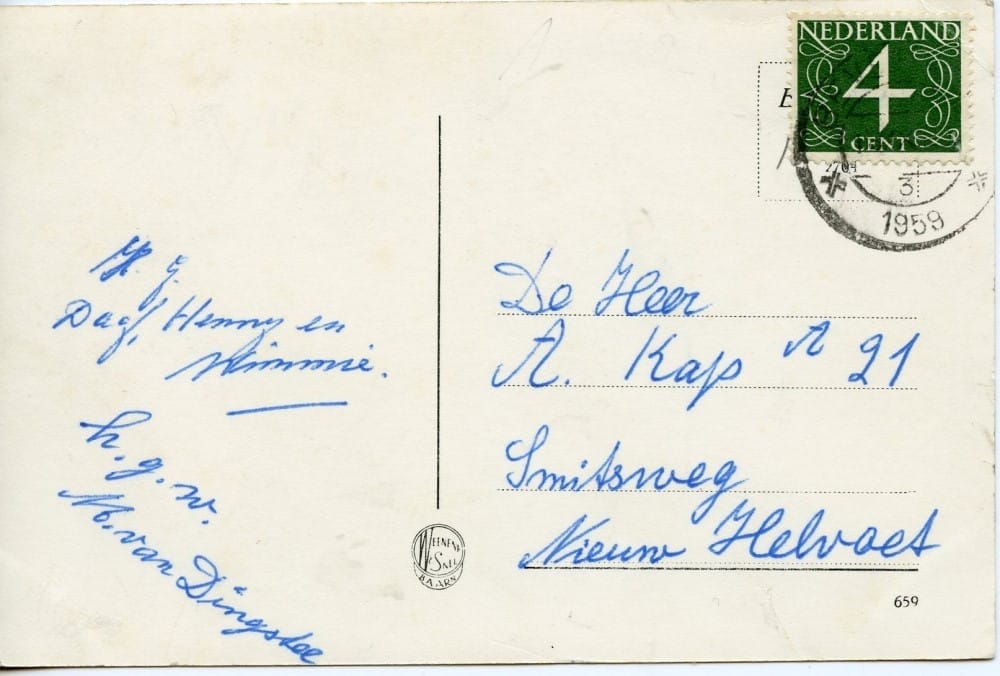 NEDERLAND
4
CENT
3
1959
H. g.
Dag, Henny en
Wimmie.
h. g. w.
M. van Dingstee
De Heer
A. Kap A 21
Smitsweg
Nieuw Helvoet
WEENENK
& SNEL
BAARN
659